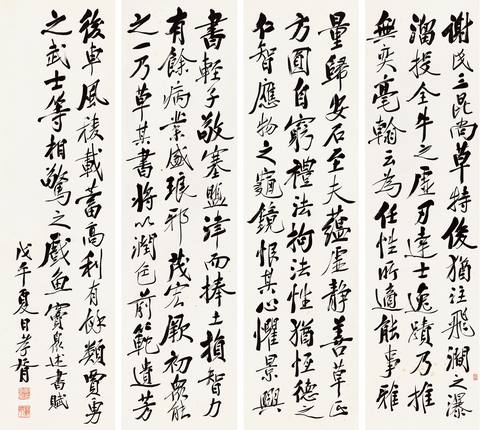 謝氏三昆尚草特俊猶注飛澗之瀑
溜投全牛之虛刃達士逸蹟乃推
無奕毫翰云為任性所適能事雅
量歸安石至夫蘊虛靜善草正
方圓自窮禮法拘法性猶恆德之
仁智應物之龜鏡恨其心懼景興
書輕子敬塞盟津而捧土損智力
有餘病業盛琅邪茂宏厥初眾能
之一乃草其書將以潤色前範遺芳
後車風稜載蓄高利有餘類賈勇
之武士等相驚之戲魚竇臮述書賦
戊午夏日孝胥